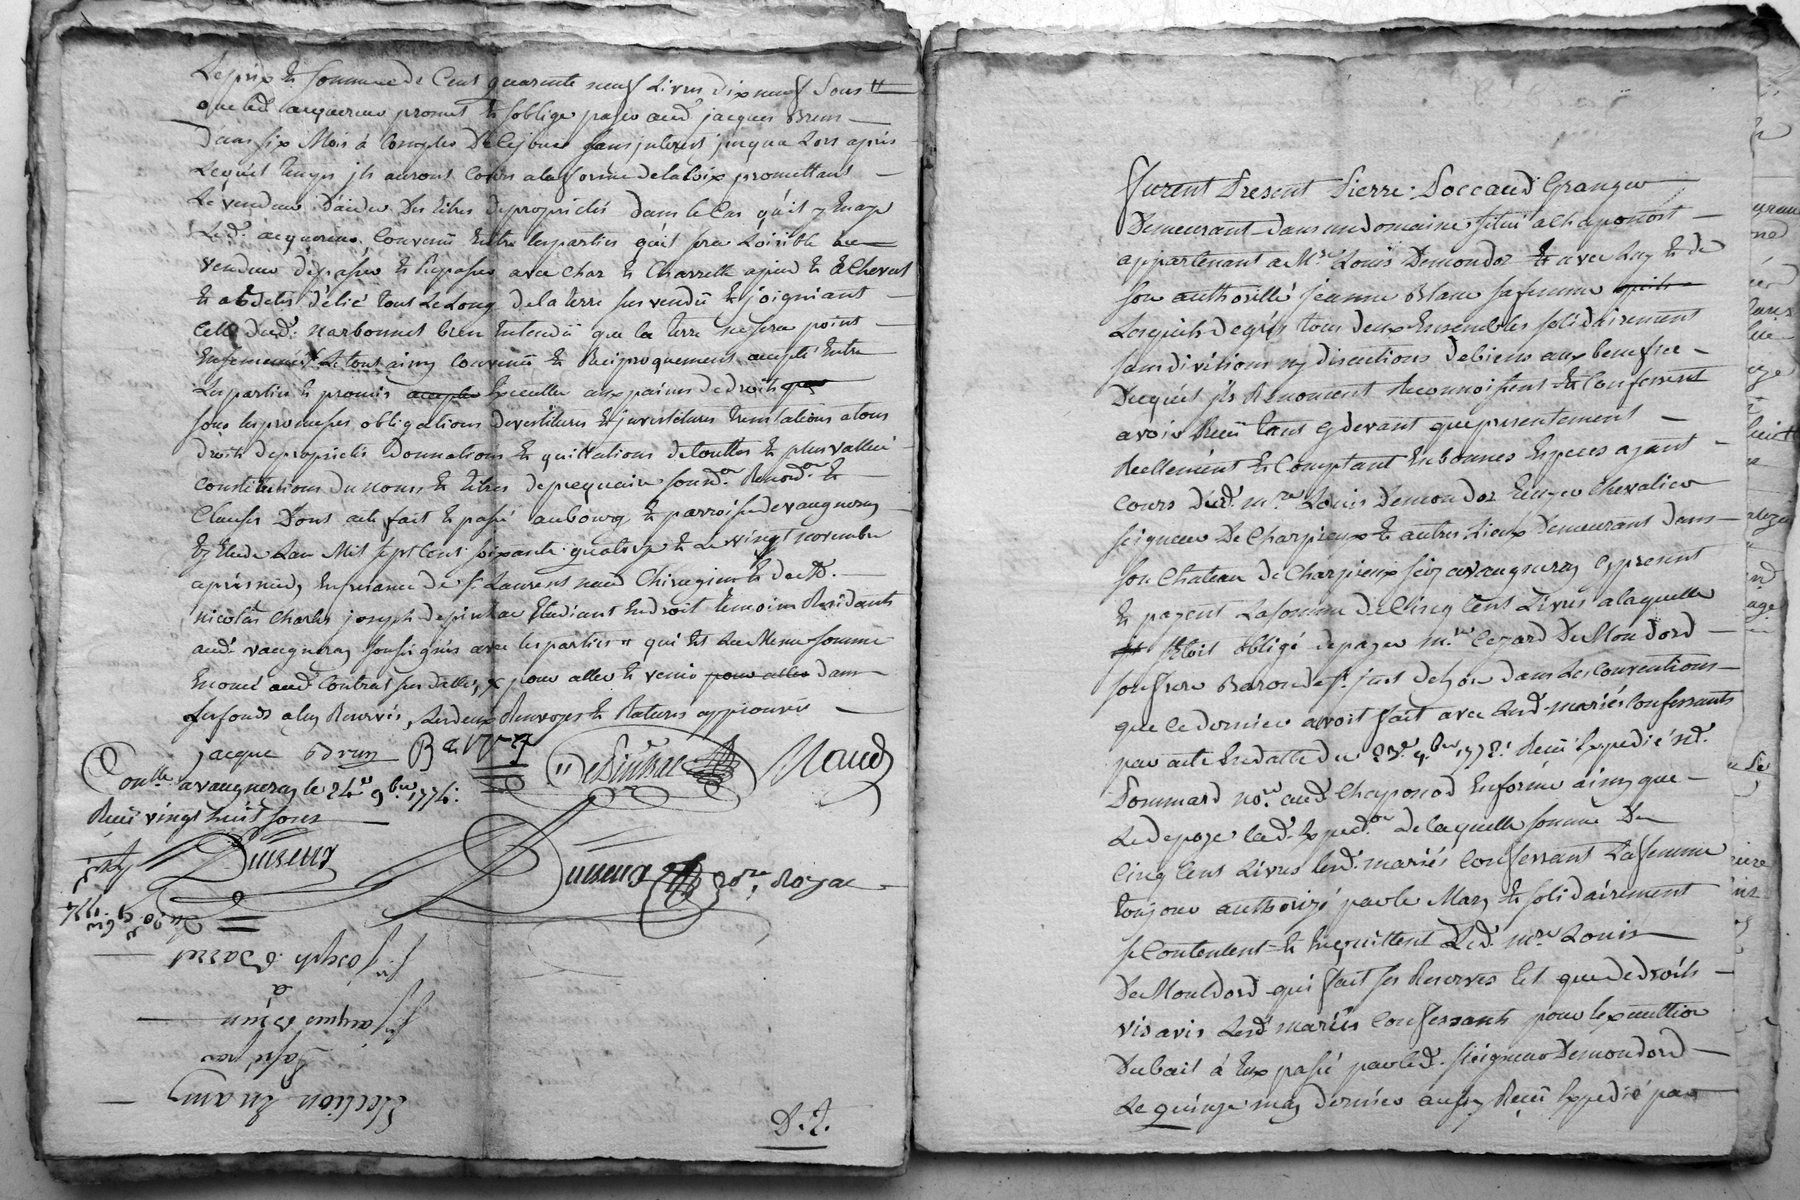 Le prix et somme de Cent quarante neuf Livres dix neuf Sous tt
que led acquereur promet et soblige payer aud jacques Brun
Dans six Mois à Compter De Cejour sans juterest jusqua Lors après
Lequel temps ils auront Cours ala forme dela loix promettant
Le vendeur D'aider Des titres de propriétés dans le Cas qu'il y En aye
Led. acquereur Convenû Entre lesparties quil sera Loisible au
vendeur de passer et Repasser avec Char et Charrette apied et àCheval
tout Le Long dela terre sus vendû et joigniant
Celle dud. narbonnet bien Entendû que la terre ne sera point
Le tout ainsy Convenû et Reciproquement accepté Entre
Les parties et promis Executter aux peines de droit
sous les promesses obligations devestitures et jnvestitures translations atous
droits de propriété Donnations et quittations de touttes et plus vallüe
Constitutions du noms et titres de precquaire soum.on Renon.on et
Clauses Dont acte fait et passé au bourg et parroisse de vaugneray
Etude Lan Mil sept Cent soixante quatorze et Le vingt novembre
après midy En presence de sr. Laurent naud Chirugien et de Mr.
nicolas Charles joseph depinhac Etudiant En droit temoins Residants
aud. vaugneray soussignés avec les parties qui Est La Meme somme
Enoncé aud. Contrat sus datter x pour aller et venir pour aller dans
ses fonds aluy Reservés, Les deux Renvoyes et Ratures approuvés
jacque Brun B & 1774 Naud
Conllé. a vaugneray le 24e. 9bre 1774.
Reçu vingt huit sous
Nore. Royal
Du 20. 9bre 1774
Sr. Joseph Barret
à
Sr. jacque Brun
Passé par
Election En amy
D. J.
Furent Present Pierre Poccaud Granger
Demeurant dans un domaine situé a Chaponost
appartenant a Mre Louis Demondor Et avec Luy et de
son authorité jeanne Blanc sa femme
Lesquels degrés tous deux Ensembles solidairement
sans divitions ny discutions de biens aux benefice
Duquel jls Renoncent Reconnoissent et Confessent
avoir Reçû tant cydevant que presentement
Reellement et Comptant En bonnes Especes ayant
Cours Dud. mre Louis Demondor Ecuyer Chevalier
seigneur De Charpieux et autres Lieux Demeurant dans
son Chateau de Charpieux avaugneray cy present
Et payent La somme de Cinq Cent Livres alaquelle
sEtoit obligé de payer mre. Cezard De Mondord
son frere Baron de st. just dans Les Conventions
que ce dernier avoit fait avec Lesd. mariés Confessants
par acte En datte du 23e. 9bre 1772. Reçû Expedié Md.
Pommard no.re aud. Chaponod En forme ainsy que
Led. expedon. De laquelle somme De
Cinq Cent Livres Lesd. mariés Confessant La femme
toujour authorizé parle Mary et solidairement
se Contentent et Enquittent Led. mre Louis
De Mondord qui fait ses Reserves tel que de droits
vis avis Lesd. mariés Confessants pour lexecuttion
Du bail à Eux passé par led. seigneur Demondord
Le quinze may dernier aussy Reçû Expedié par